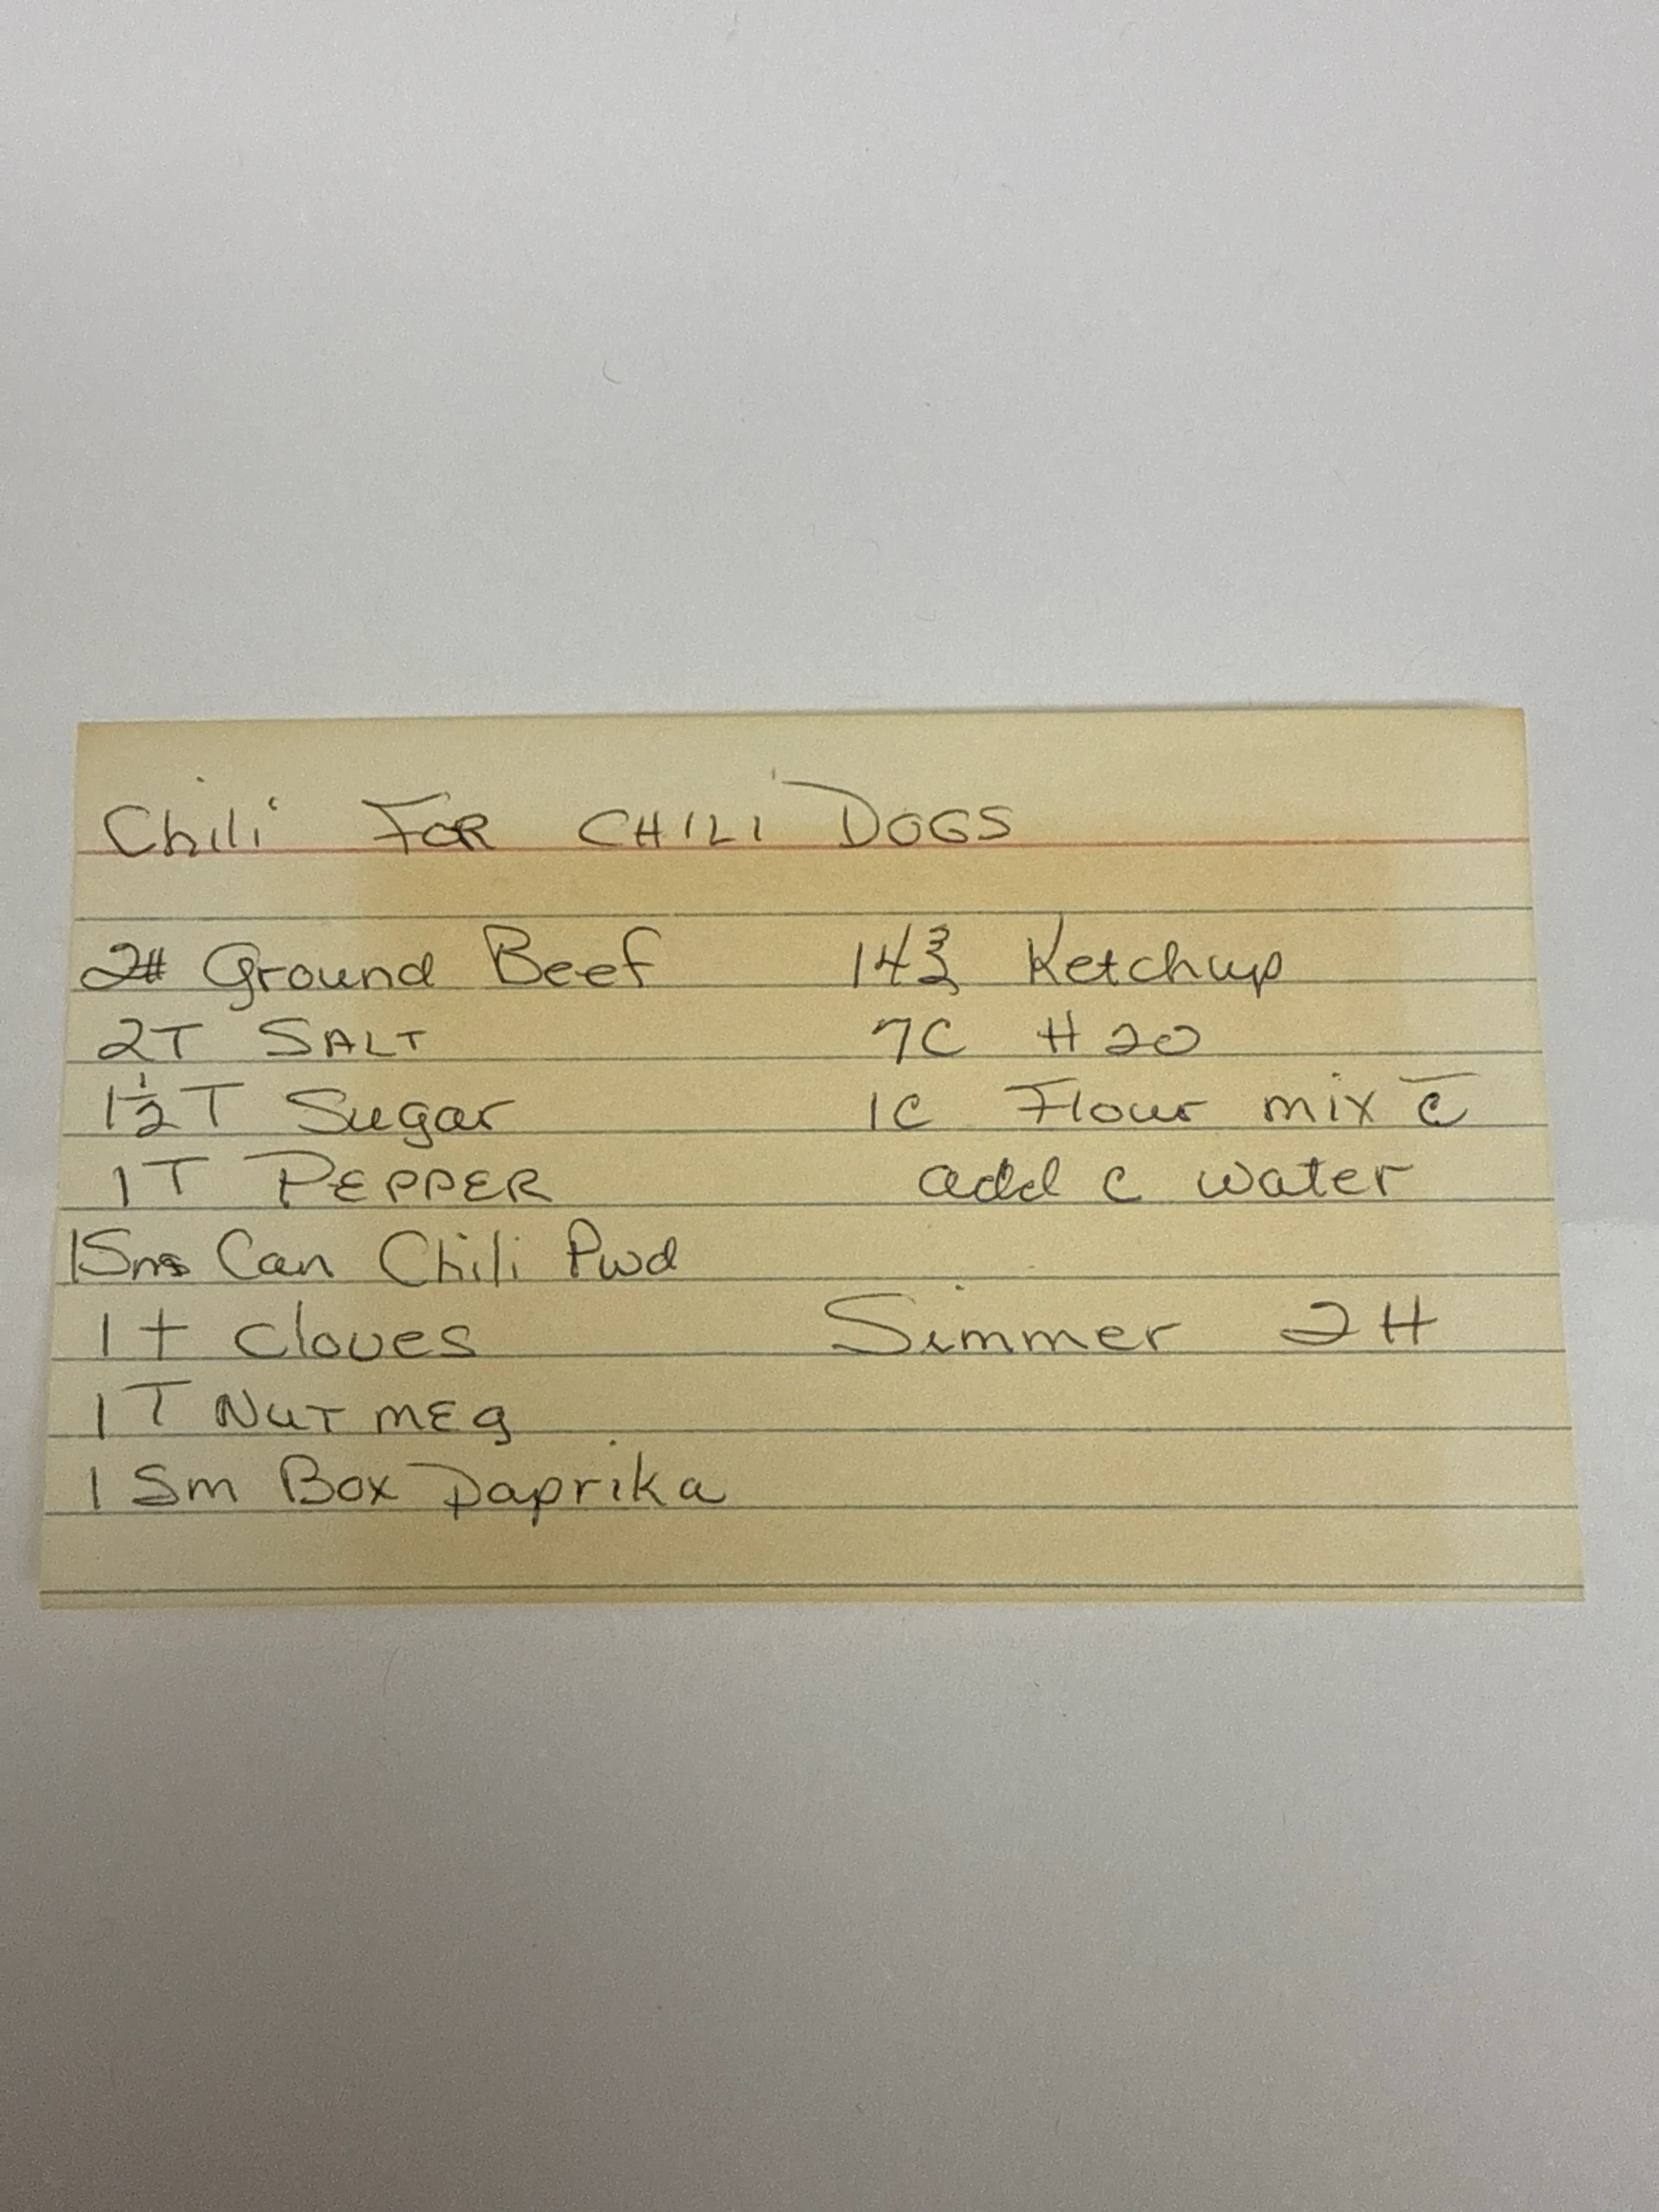 Chili FOR CHILI DOGS
2# Ground Beef
2T SALT
1½T Sugar
1T PEPPER
1 Sm Can Chili Pwd
1t cloves
1T NUTMEg
1 Sm Box Paprika
14℥ Ketchup
7C H2O
1C Flour mix c̄
add c water
Simmer 2H